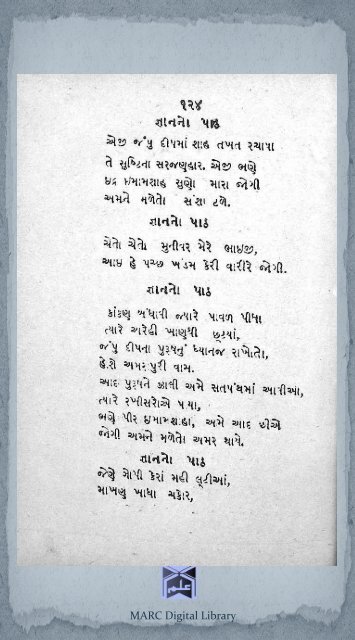 ૧૨૪
જ્ઞાનનો પાઠ
એજી જંપુ દીપમાં શાહ તખત રચાયા
તે સુષ્ટિના સરજણહાર. એજી ભણે
ઇંદ્ર ઇમામશાહ સુણો મારા જોગી
અમને મળેતો સંશા ટળે.
જ્ઞાનનો પાઠ
ચેતો ચેતો મુનીવર મેરે ભાઇજી,
આઇ હે પચ્છ ખંડમ કેરી વારીરે જોગી.
જ્ઞાનનો પાઠ
કાંકણ બંધાવી જ્યારે પાવળ પીધા
ત્યારે અરેઠી ખાણુથી છૂટયાં,
જંપુ દીપના પુરૂષનું ધ્યાનજ રાખોતો,
હેશે અમરપુરી વામ.
આદ પુરૂષને ઝાલી અમે સતપંથમાં આવીઆં,
ત્યારે રખીસરોએ પયા,
ભણે પીર ઇમામશાહા, અમે આદ છીએ
જોગી અમને મળેતો અમર થાયે.
જ્ઞાનનો પાઠ
જેણે ગોપી કેરાં મહી લૂટીઆં,
માખણ ખાધા ચકોર,
علم
MARC Digital Library